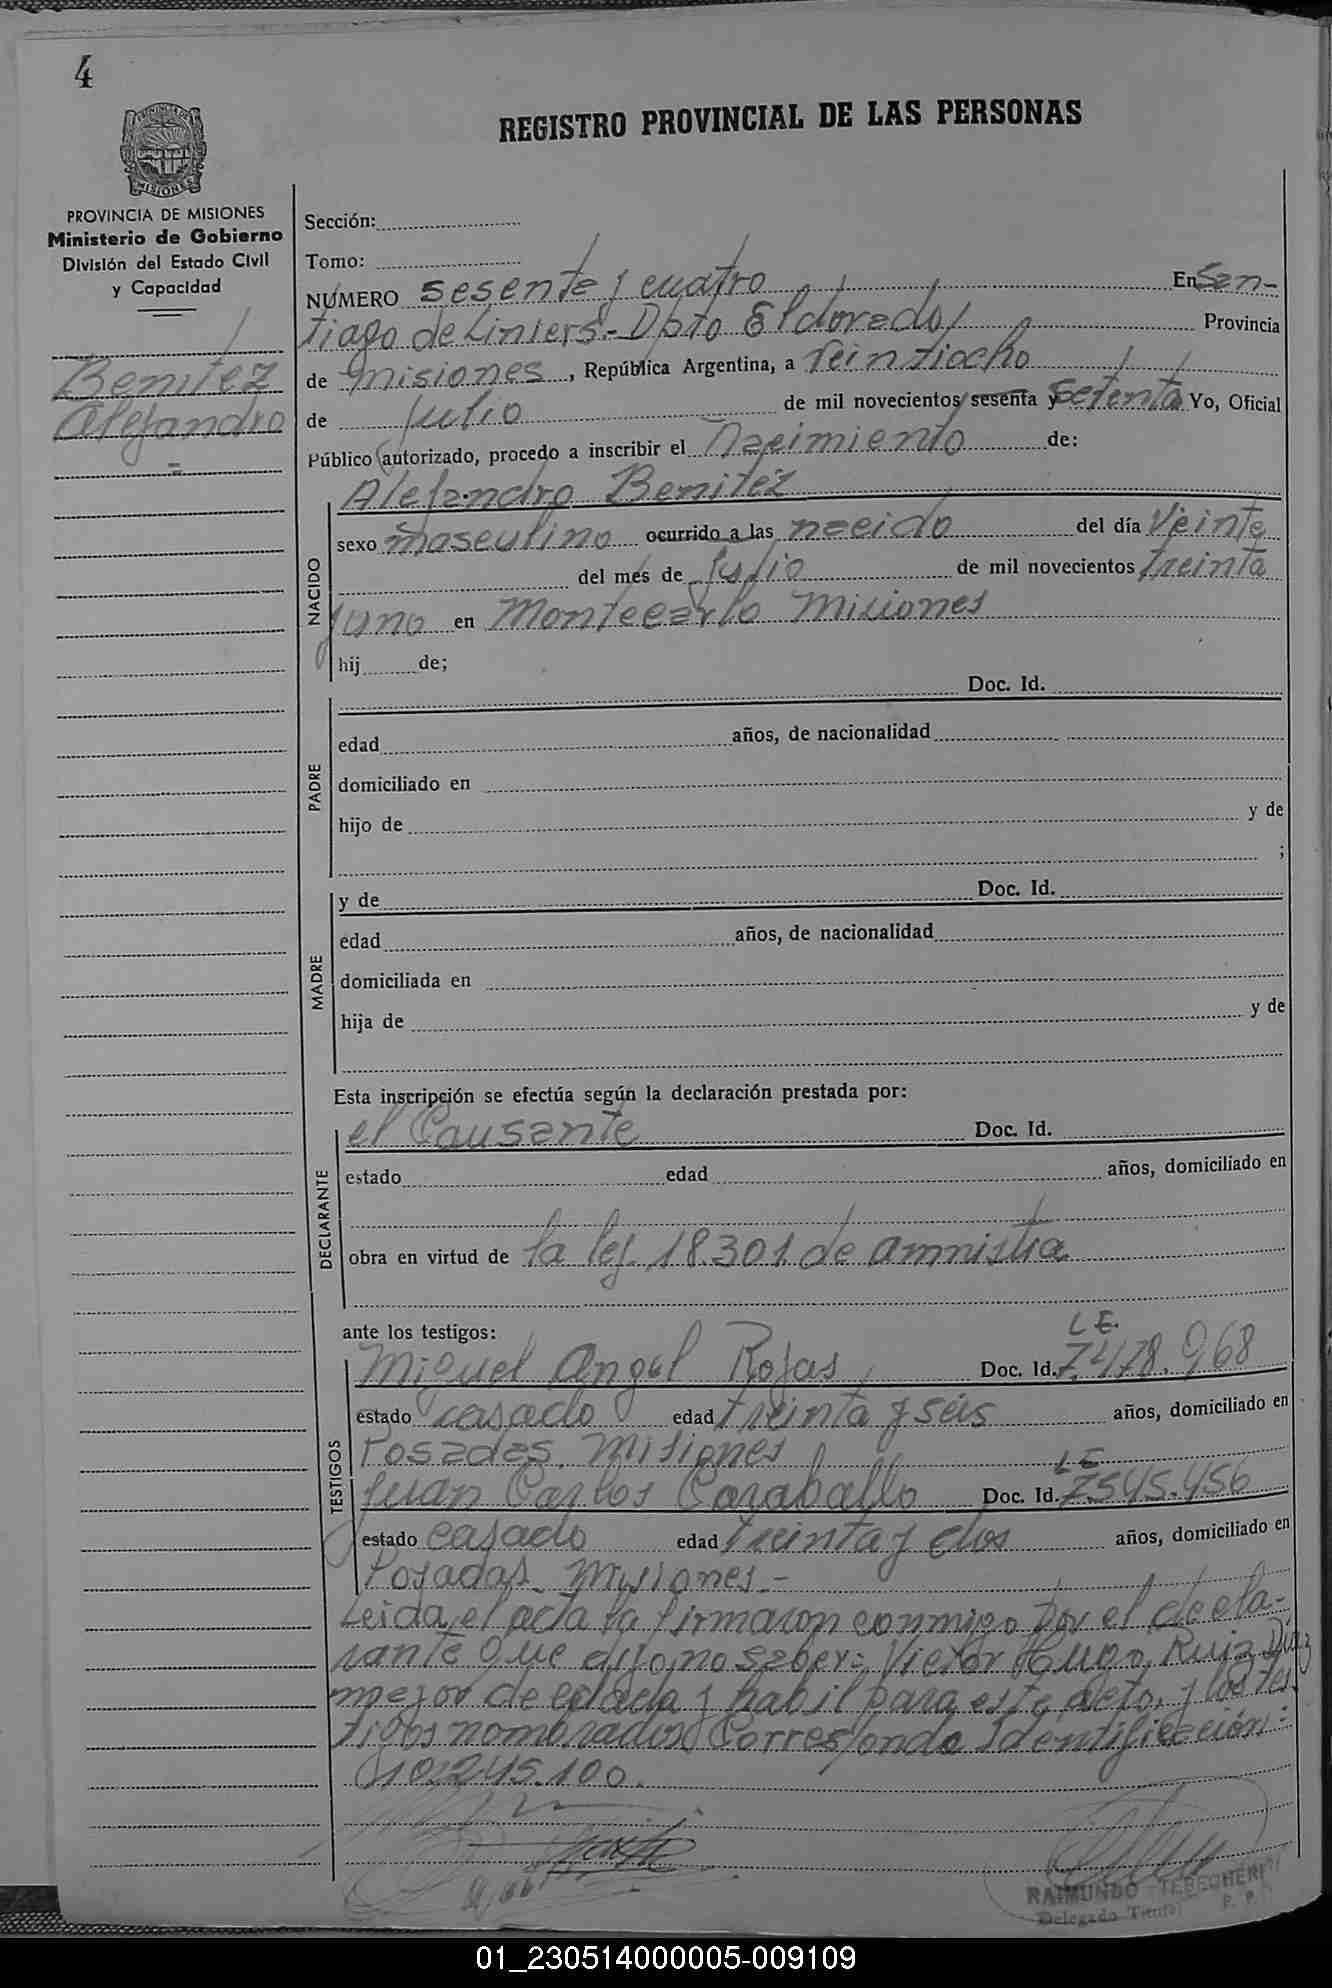 4
REGISTRO PROVINCIAL DE LAS PERSONAS
MISIONES
PROVINCIA DE MISIONES
Ministerio de Gobierno
División del Estado Civil
y Capacidad
Benitez
Alejandro
Sección:
Tomo:
NÚMERO sesenta y cuatro En San-
tiago de Liniers.- Dpto Eldorado Provincia
de misiones, República Argentina, a veintiocho
de julio de mil novecientos sesenta y setenta Yo, Oficial
Público autorizado, procedo a inscribir el Nacimiento de:
NACIDO
Alejandro Benitez
sexo masculino ocurrido a las nacido del día Veinte
del mes de Julio de mil novecientos treinta
y uno en Montecarlo Misiones
hij de;
PADRE
Doc. Id.
edad años, de nacionalidad
domiciliado en
hijo de y de
;
MADRE
y de Doc. Id.
edad años, de nacionalidad
domiciliada en
hija de y de
Esta inscripción se efectúa según la declaración prestada por:
DECLARANTE
el Causante Doc. Id.
estado edad años, domiciliado en
obra en virtud de la ley 18.301 de amnistia
ante los testigos:
TESTIGOS
L.E.
Miguel Angel Rojas Doc. Id. 7.478.968
estado casado edad treinta y seis años, domiciliado en
Posadas. Misiones
L E
Juan Carlos Caraballo Doc. Id. 7.545.456
estado casado edad treinta y dos años, domiciliado en
Posadas. Misiones.-
Leida el acta la firmaron conmigo por el decla-
rante que dijo no saber: Victor Hugo Ruiz Diaz
mayor de edad y habil para este acto, y los tes-
tigos nombrados Corresponde Identificación:
10.245.100.
RAIMUNDO
Delegado Titular
01_230514000005-009109